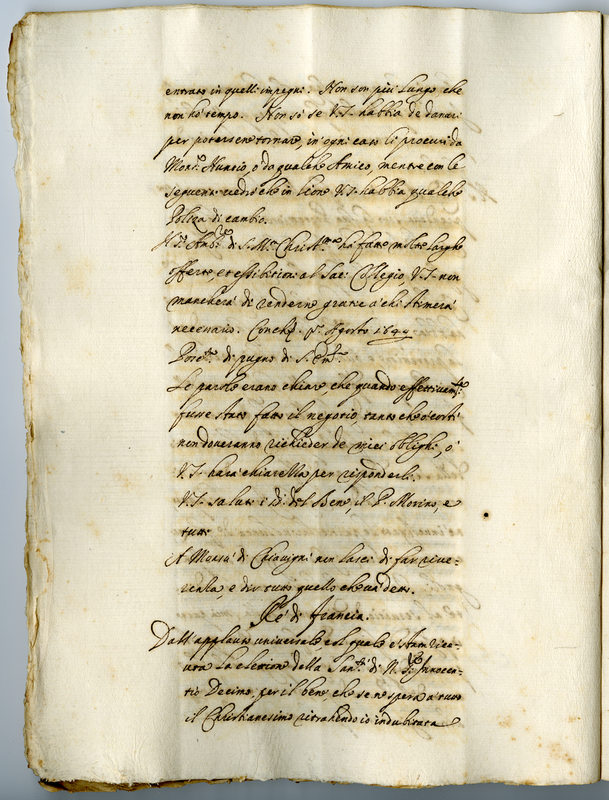 entrato in quelli impegni. Non son più lungo che
non hò tempo. Non sò se V.S. habbia de danari
per potersene tornare, in ogni caso li procuri da
Mons.r Nuntio, ò da qualche Amico, mentre con le
seguenti vedrò che in Lione V.S. habbia qualche
Poliza di cambio.
di S. M.tà Christ.ma ha fatto molte larghe
offerte, et essibitioni al Sac. Collegio, V.S. non
mancherà di renderne gratie à chi stimerà
necessario. Agosto 1644
Posc.ta di pugno di S. Em.za
Le parole erano chiare, che quando effettivam.te
fusse stato fatto il negotio, tanto che costì
non doveranno richieder de miei oblighi, ò
V.S. havrà chiarella per risponderli.
V.S. saluti i SS. del Bene, il P. Morino, e
tutti
A Monsù di Chavignì non lasci di far rive=
renza, e dir tutto quello che và detto.
Rè di Francia.
Dall'applauso universale col quale è stata rice=
vuta la elettione della San.tà di N. S.re Innocen=
tio Decimo, per il bene, che se ne spera à tutto
il Christianesimo ritrahendo io indubitata